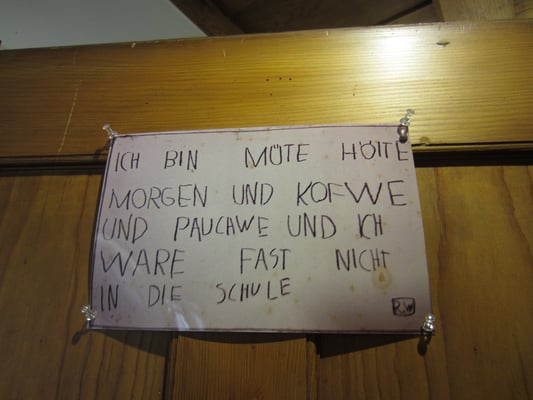 ICH BIN MÜTE HÖITE
MORGEN UND KOFWE
UND PAUCHWE UND ICH
WARE FAST NICHT
IN DIE SCHULE